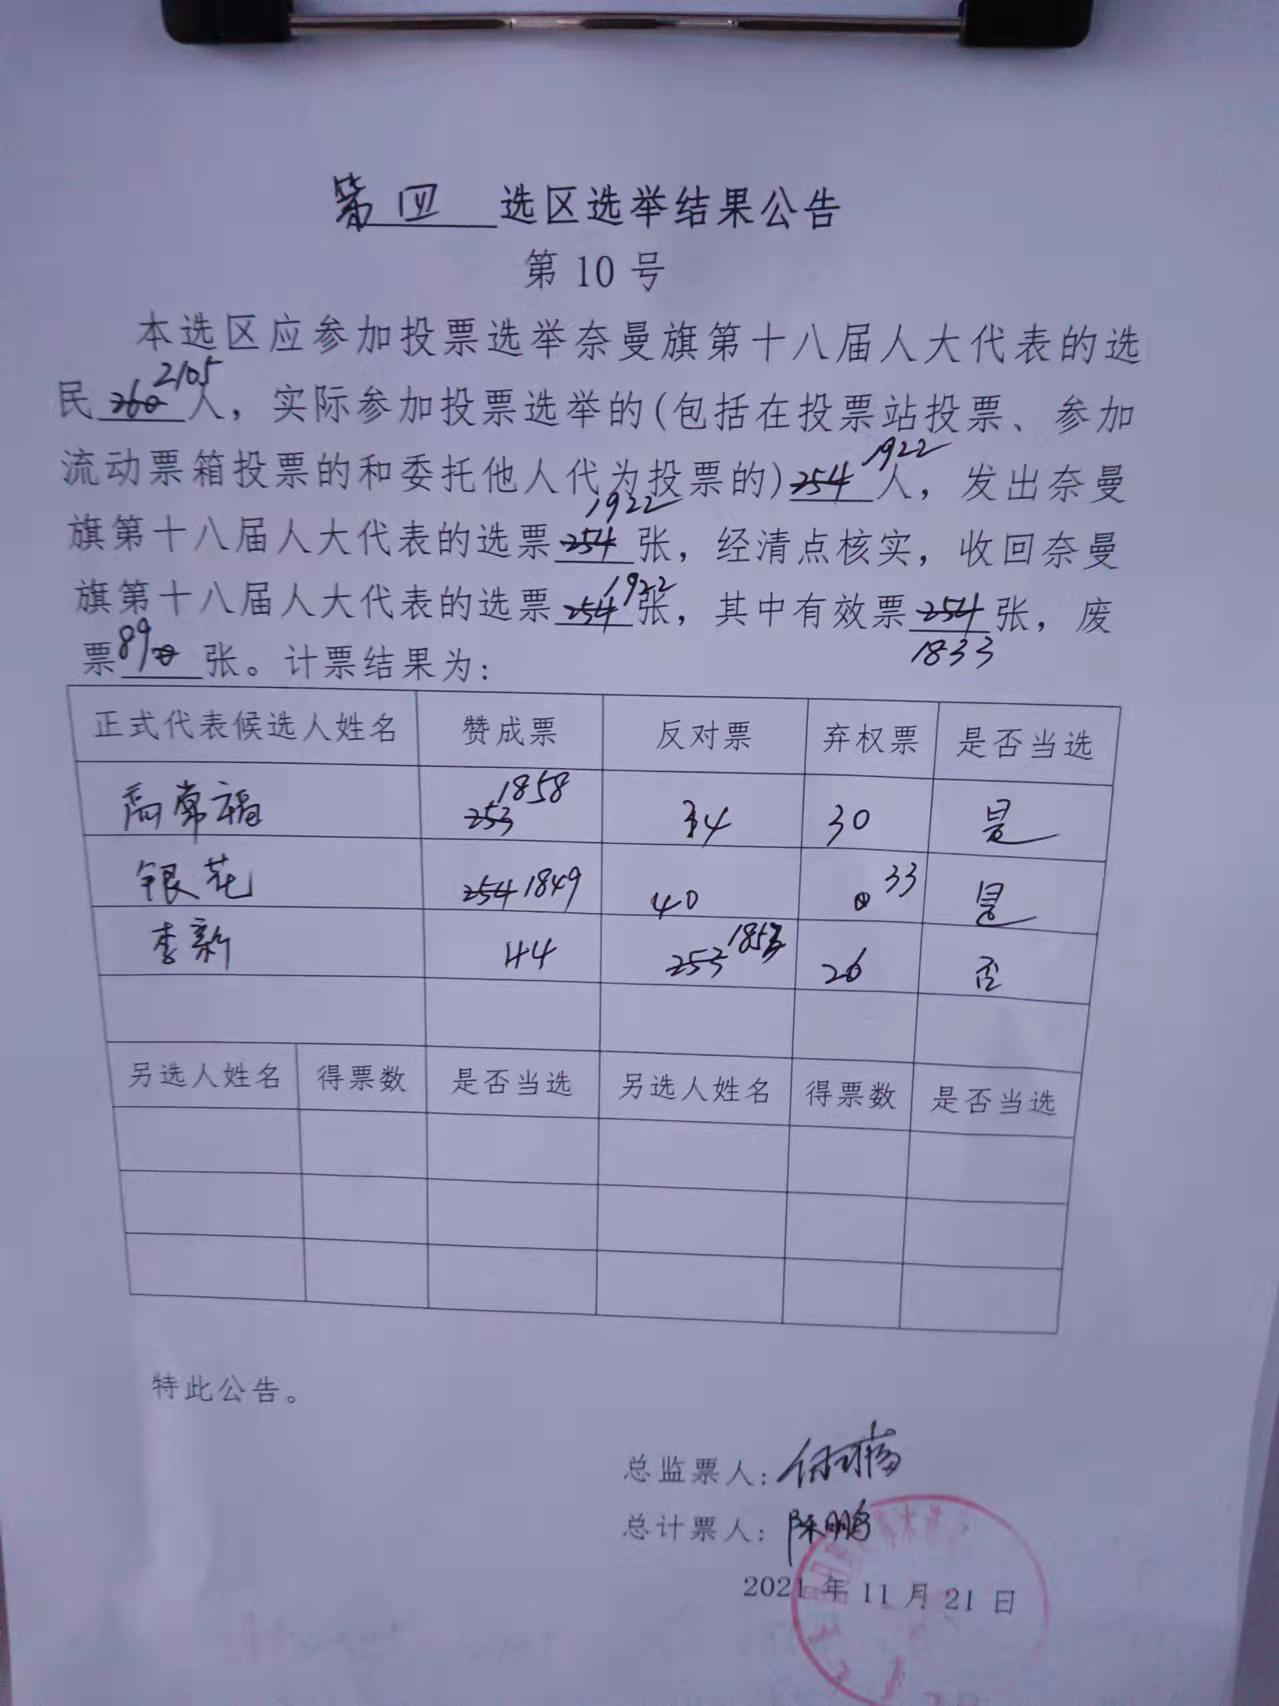 第四 选区选举结果公告
第 10 号
本选区应参加投票选举奈曼旗第十八届人大代表的选
2105
民 260 人，实际参加投票选举的(包括在投票站投票、参加
1922
流动票箱投票的和委托他人代为投票的) 254 人，发出奈曼
1922
旗第十八届人大代表的选票 254 张，经清点核实，收回奈曼
1922
旗第十八届人大代表的选票 254 张，其中有效票 254 张，废
1833
票 89 张。计票结果为：
正式代表候选人姓名 赞成票 反对票 弃权票 是否当选
常福 253 1858 34 30 是
银花 254 1849 40 0 33 是
李新 44 253 1853 26 否
另选人姓名 得票数 是否当选 另选人姓名 得票数 是否当选
特此公告。
总监票人：
总计票人：陈鹏
2021 年 11 月 21 日